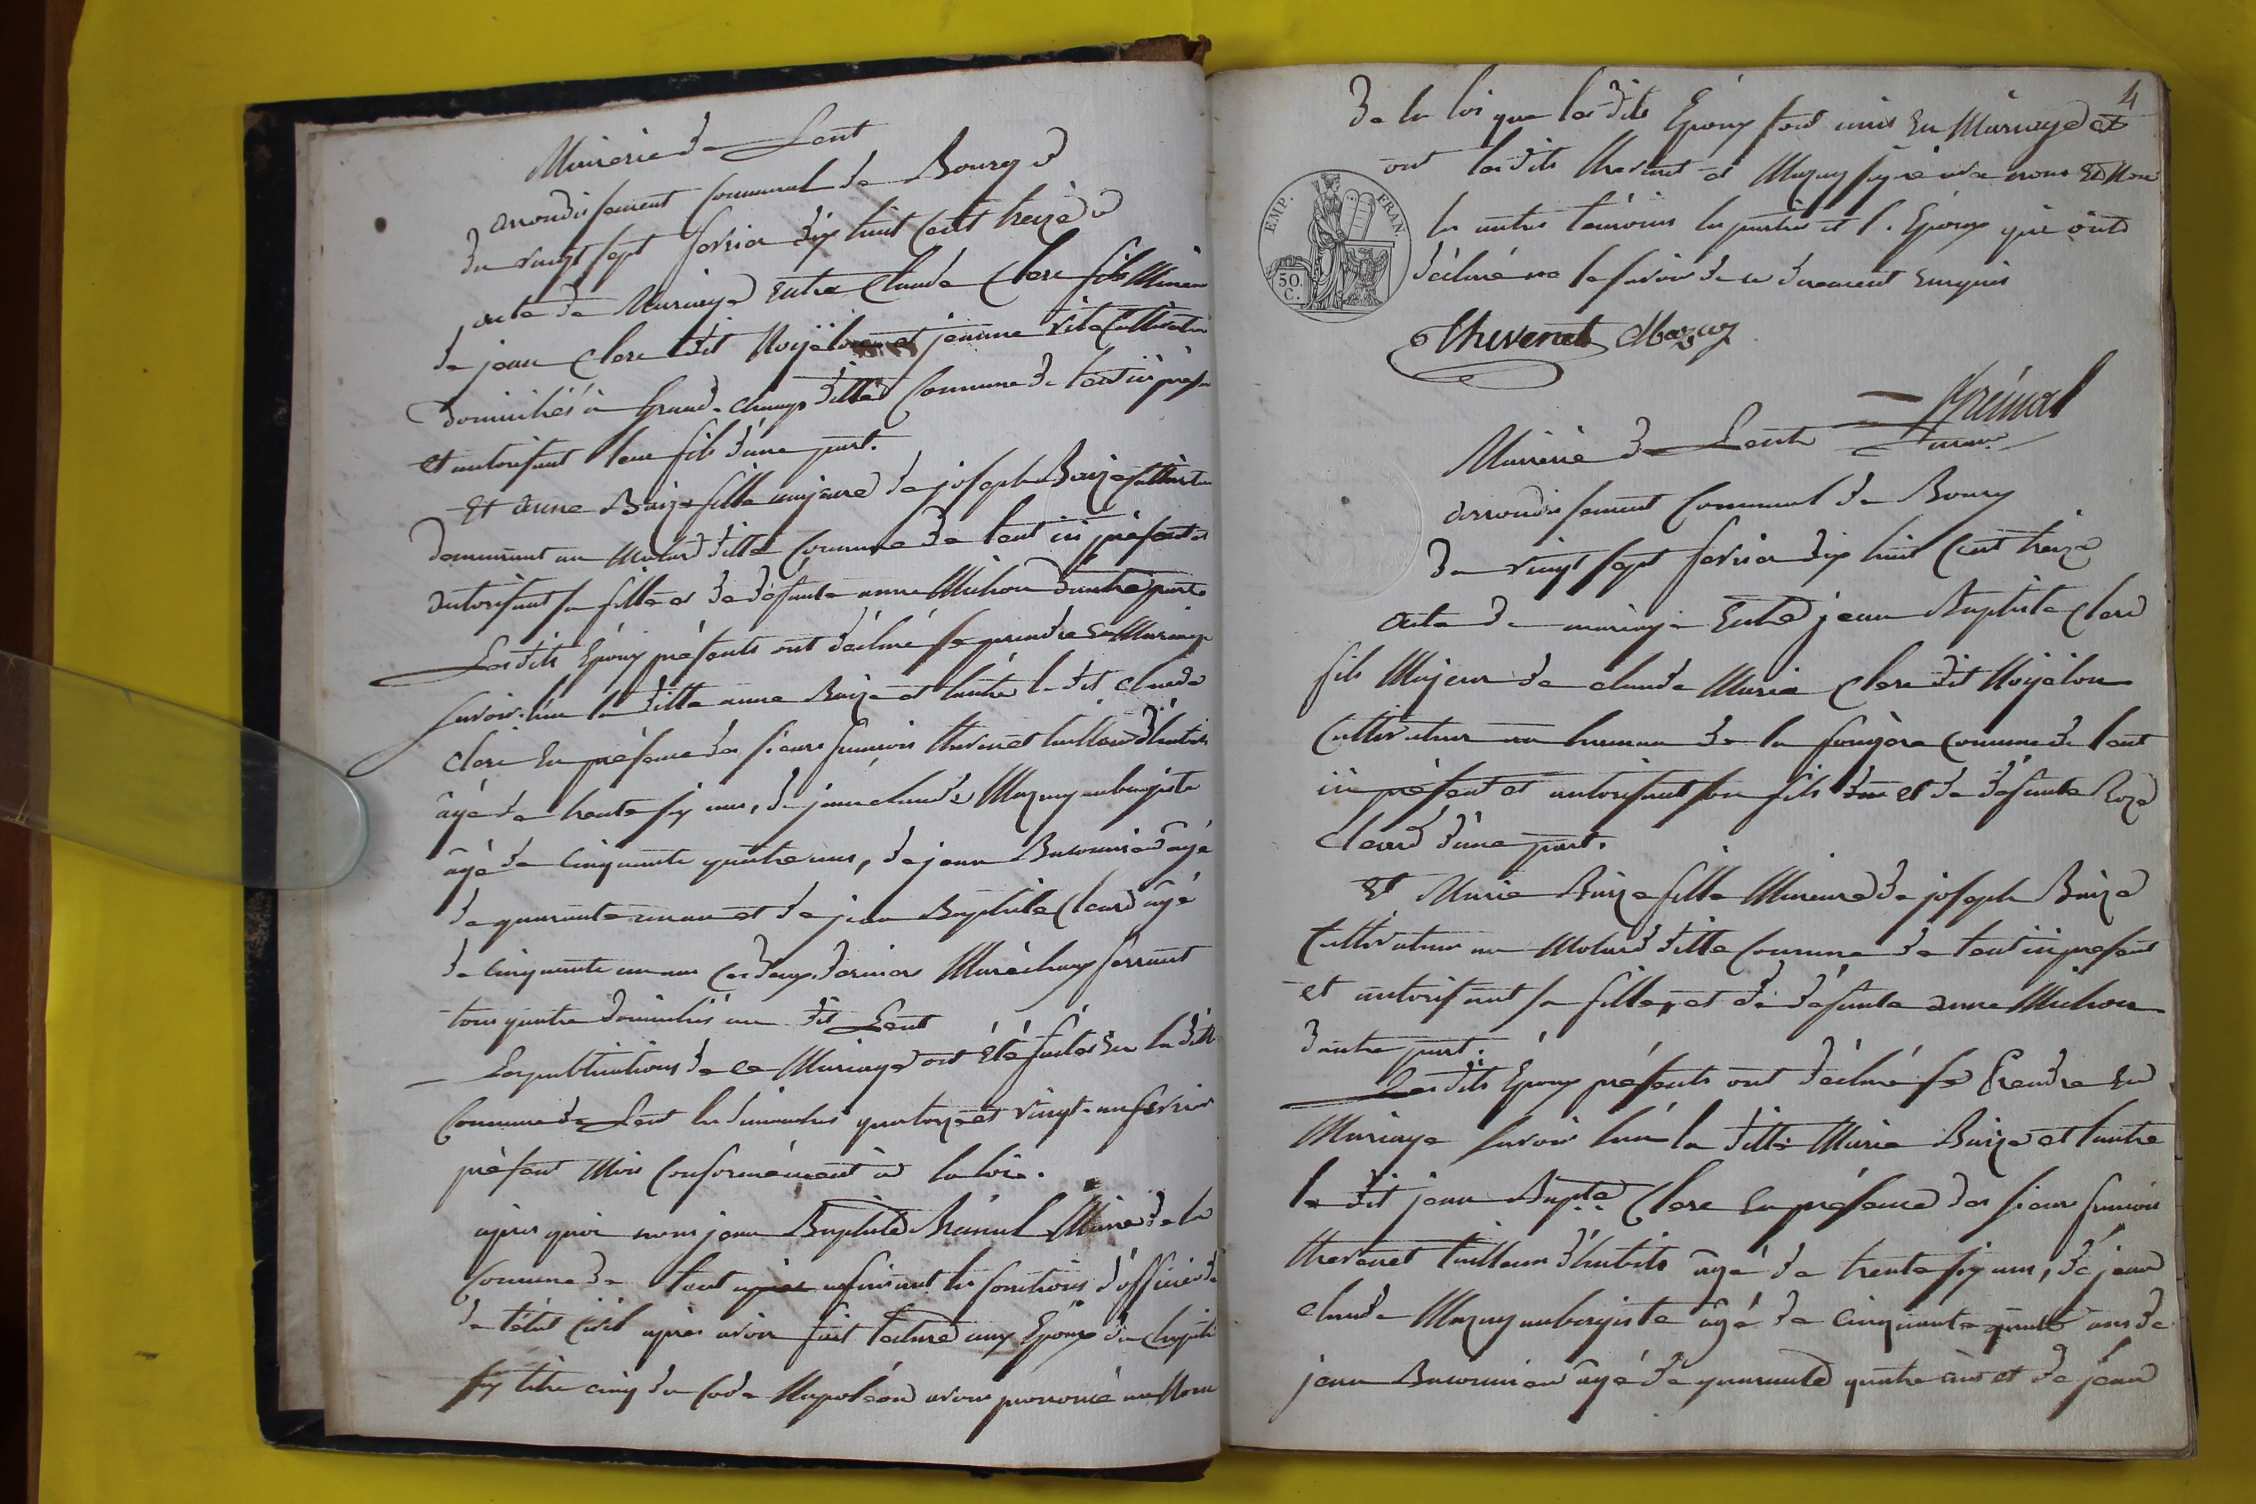 Mairerie de Lent
arrondissement Communal de Bourg
du vingt sept fevrier dix huit Cent treize
acte de Mariage Entre Claude Clerc fils Mineur
de jean Clerc dit et jeanne Cultivateur
Domiciliés à Grand-champ ditte Commune de Lent ici présents
et autorisant leur fils d'une part.
Et anne Baize fille majeure de joseph Baize Cultivateur
demeurant au Molard ditte Commune de Lent ici présent et
autorisant sa fille et de défunte anne Michon d'autre part
Lesdits Epoux présents ont déclaré se prendre en Mariage
savoir l'un la ditte anne Baize et lautre le dit claude
clerc En présence des sieurs françois thevenet tailleur d'habits
âgé de trente six ans, de jean claude Mazuy aubergiste
âgé de Cinquante quatre ans, de jean âgé
de quarante ans et de jean Baptiste Clerd âgé
de Cinquante un ans Ces deux derniers Maréchaux ferrant
tous quatre Domiciliés au dit Lent
Les publications de ce Mariage ont été faites En la ditte
Commune de Lent les dimanches quatorze et vingt-un fevrier
présent Mois Conformément à la loi.
après quoi nous jean Baptiste Maire de la
Commune de Lent les fonctions d'officier
de l'état Civil après avoir fait lecture aux Epoux du chapitre
six titre cinq du Code Napoléon avons prononcé au Nom
4
De la loi que lesdits Epoux sont unis En Mariage et
ont lesdits thevenet et Mazuy signé avec nous Et Non
les autres témoins les parties et l. Epoux qui ont
déclaré ne le savoir de ce dument Enquis
EMP. FRAN.
50. C.
Thevenet Mazuy
Mairerie de Lent
arrondissement Communal de Bourg
du vingt sept fevrier dix huit Cent treize
acte de mariage Entre jean Baptiste Clerc
fils Majeur de claude Marie Clerc dit
Cultivateur au hameau de la fougère Commune de Lent
ici présent et autorisant son fils et de défunte Roze
Clerd d'une part.
Et Marie Baize fille Mineure de joseph Baize
Cultivateur au Molard ditte Commune de Lent ici présent
et autorisant sa fille, et de défunte anne Michon
d'autre part.
Lesdits Epoux présents ont déclaré se Prendre En
Mariage savoir l'un la ditte Marie Baize et lautre
le dit jean Bapte Clerc En présence des sieurs françois
thevenet tailleur d'habits âgé de trente six ans, de jean
claude Mazuy aubergiste âgé de Cinquante quatre ans de
jean âgé de quarante quatre ans et de jean